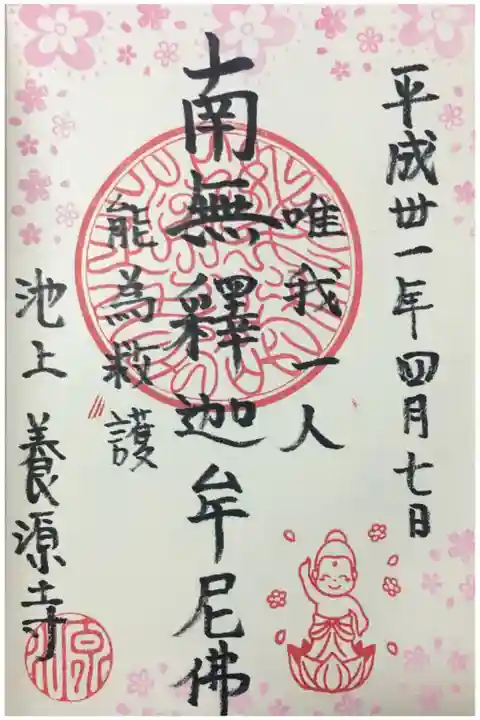 平成丗一年四月七日
唯我一人
南無釋迦牟尼佛
能為救護
池上 養源寺